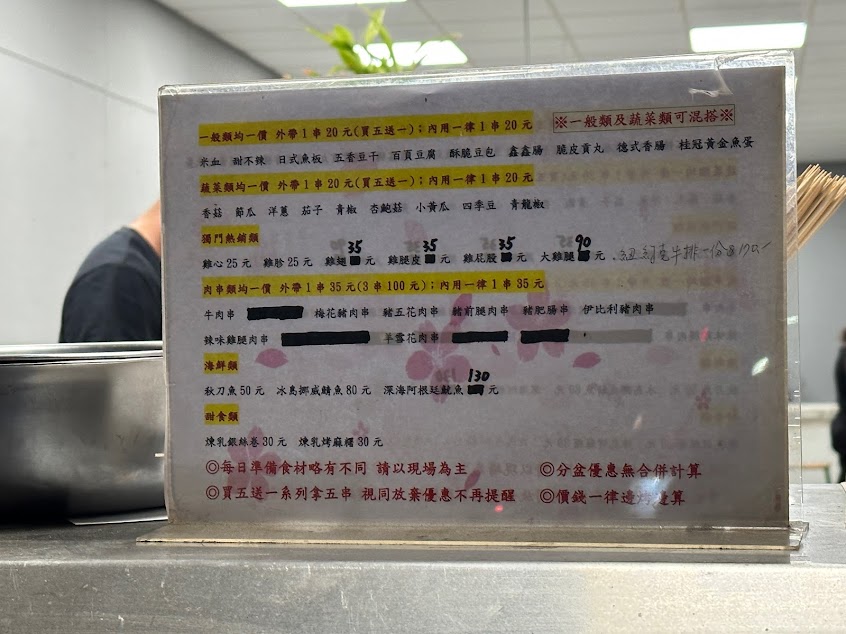 一般類均一價 外帶1串20元(買五送一)；內用一律1串20元
※一般類及蔬菜類可混搭※
米血 甜不辣 日式魚板 五香豆干 百頁豆腐 酥脆豆包 鑫鑫腸 脆皮貢丸 德式香腸 桂冠黃金魚蛋
蔬菜類均一價 外帶1串20元(買五送一)；內用一律1串20元
香菇 節瓜 洋蔥 茄子 青椒 杏鮑菇 小黃瓜 四季豆 青龍椒
獨門熱銷類
雞心25元 雞胗25元 雞翅35元 雞腿皮35元 雞屁股35元 大雞腿90元 紐約克牛排一份
肉串類均一價 外帶1串35元(3串100元)；內用一律1串35元
牛肉串 梅花豬肉串 豬五花肉串 豬前腿肉串 豬肥腸串 伊比利豬肉串
辣味雞腿肉串 羊雪花肉串
海鮮類
秋刀魚50元 冰島挪威鯖魚80元 深海阿根廷魷魚130元
甜食類
煉乳銀絲卷30元 煉乳烤麻糬30元
◎每日準備食材略有不同 請以現場為主 ◎分盆優惠無合併計算
◎買五送一系列拿五串 視同放棄優惠不再提醒 ◎價錢一律邊烤邊算